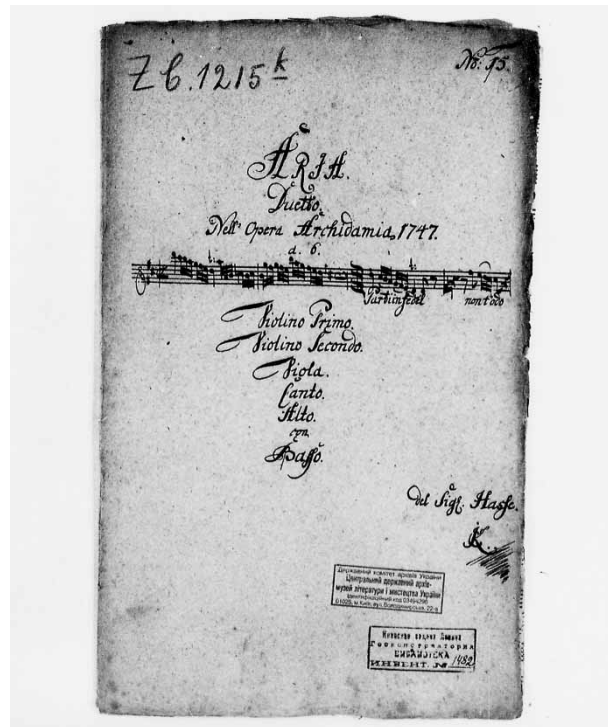 Z C. 1215 k
No: 15.
ARIA.
Duetto.
Nell' Opera Archidamia, 1747.
a. 6.
Parti infedel non t'odo
Violino Primo.
Violino Secondo.
Viola.
Canto.
Alto.
con
Basso.
del Sigl. Hasse.
Державний комітет архівів України
Центральний державний архів-
музей літератури і мистецтва України
Ідентифікаційний код
01025, м.Київ, вул. Володимирська, 22-а
Киевская ордена Ленина
Госконсерватория
БИБЛИОТЕКА
ИНВЕНТ. № 1482